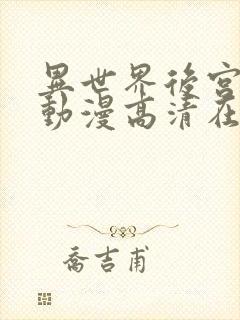 異世界後宮
動漫高清在
喬吉甫